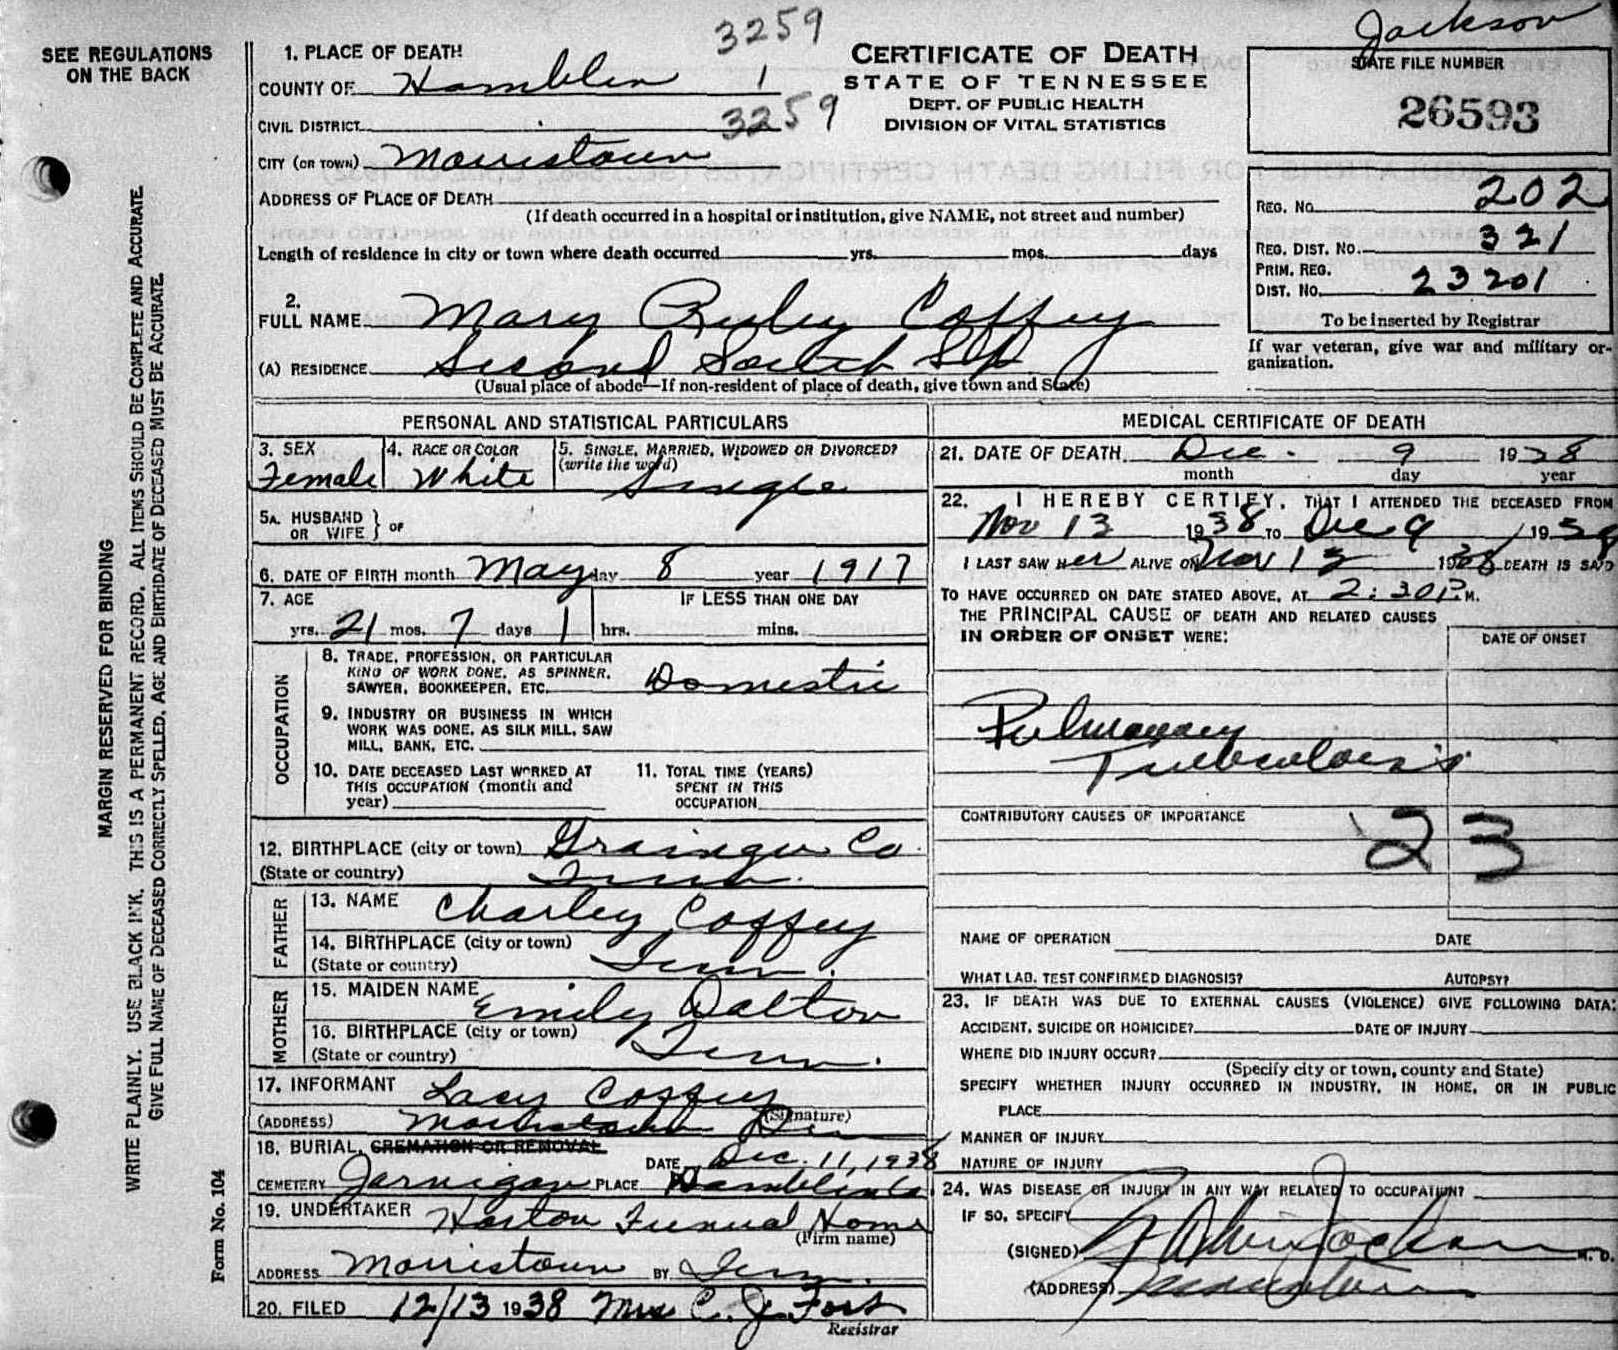 Jackson
3259
SEE REGULATIONS
ON THE BACK
MARGIN RESERVED FOR BINDING
WRITE PLAINLY. USE BLACK INK. THIS IS A PERMANENT RECORD. ALL ITEMS SHOULD BE COMPLETE AND ACCURATE.
GIVE FULL NAME OF DECEASED CORRECTLY SPELLED. AGE AND BIRTHDATE OF DECEASED MUST BE ACCURATE.
Form No. 104
CERTIFICATE OF DEATH
STATE OF TENNESSEE
DEPT. OF PUBLIC HEALTH
DIVISION OF VITAL STATISTICS
STATE FILE NUMBER
26593
1. PLACE OF DEATH
COUNTY OF Hamblen 1
CIVIL DISTRICT 3259
CITY (OR TOWN) Morristown
ADDRESS OF PLACE OF DEATH
(If death occurred in a hospital or institution, give NAME, not street and number)
Length of residence in city or town where death occurred yrs. mos. days
REG. NO. 202
REG. DIST. NO. 321
PRIM. REG.
DIST. NO. 23201
To be inserted by Registrar
If war veteran, give war and military organization.
2.
FULL NAME Mary Ruley Coffey
(A) RESIDENCE Second South St
(Usual place of abode—If non-resident of place of death, give town and State)
PERSONAL AND STATISTICAL PARTICULARS
3. SEX Female
4. RACE OR COLOR White
5. SINGLE, MARRIED, WIDOWED OR DIVORCED?
(write the word) Single
5A. HUSBAND
OR WIFE } OF
6. DATE OF BIRTH month May day 8 year 1917
7. AGE IF LESS THAN ONE DAY
yrs. 21 mos. 7 days 1 hrs. mins.
OCCUPATION
8. TRADE, PROFESSION, OR PARTICULAR
KIND OF WORK DONE, AS SPINNER,
SAWYER, BOOKKEEPER, ETC. Domestic
9. INDUSTRY OR BUSINESS IN WHICH
WORK WAS DONE, AS SILK MILL, SAW
MILL, BANK, ETC.
10. DATE DECEASED LAST WORKED AT
THIS OCCUPATION (month and
year)
11. TOTAL TIME (YEARS)
SPENT IN THIS
OCCUPATION
12. BIRTHPLACE (city or town) Grainger Co.
(State or country) Tenn.
FATHER
13. NAME Charley Coffey
14. BIRTHPLACE (city or town)
(State or country) Tenn.
MOTHER
15. MAIDEN NAME Emily Dalton
16. BIRTHPLACE (city or town)
(State or country) Tenn.
17. INFORMANT Lacy Coffey
(Signature)
(ADDRESS) Morristown
18. BURIAL, CREMATION OR REMOVAL
DATE Dec. 11, 1938
CEMETERY Jarnigan PLACE Hamblen Co.
19. UNDERTAKER Horton Funeral Home
(Firm name)
ADDRESS Morristown BY Tenn.
20. FILED 12/13 1938 Mrs C. J. Fort
Registrar
MEDICAL CERTIFICATE OF DEATH
21. DATE OF DEATH Dec. 9 1938
month day year
22. I HEREBY CERTIFY, THAT I ATTENDED THE DECEASED FROM
Nov 13 1938 TO Dec 9 1938
I LAST SAW HER ALIVE ON Nov 13 1938 DEATH IS SAID
TO HAVE OCCURRED ON DATE STATED ABOVE, AT 2:30 P.M.
THE PRINCIPAL CAUSE OF DEATH AND RELATED CAUSES
IN ORDER OF ONSET WERE:
DATE OF ONSET
Pulmonary
Tuberculosis
CONTRIBUTORY CAUSES OF IMPORTANCE
23
NAME OF OPERATION DATE
WHAT LAB. TEST CONFIRMED DIAGNOSIS? AUTOPSY?
23. IF DEATH WAS DUE TO EXTERNAL CAUSES (VIOLENCE) GIVE FOLLOWING DATA:
ACCIDENT, SUICIDE OR HOMICIDE? DATE OF INJURY
WHERE DID INJURY OCCUR?
(Specify city or town, county and State)
SPECIFY WHETHER INJURY OCCURRED IN INDUSTRY, IN HOME, OR IN PUBLIC
PLACE
MANNER OF INJURY
NATURE OF INJURY
24. WAS DISEASE OR INJURY IN ANY WAY RELATED TO OCCUPATION?
IF SO, SPECIFY
(SIGNED) Jackson M. D.
(ADDRESS) Morristown